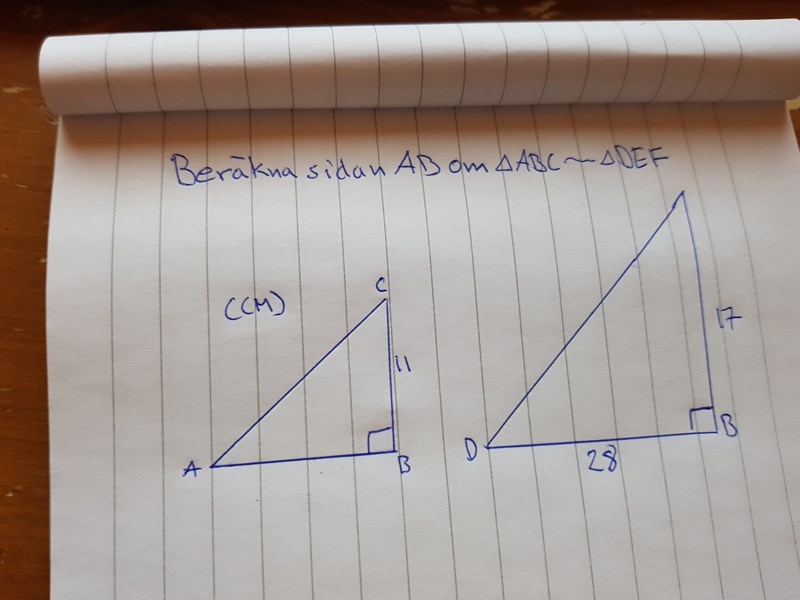 Beräkna sidan AB om △ABC ~ △DEF
(CM)
C
11
A
B
17
D
B
28